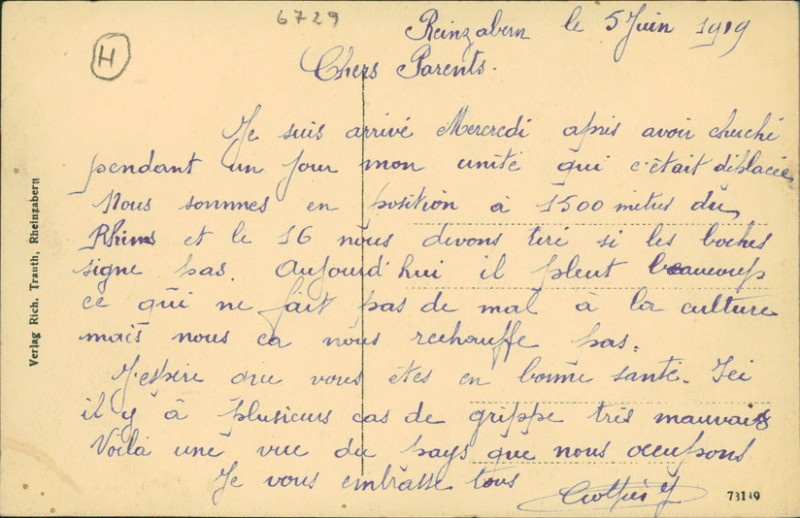 6729
H
Reinzabern le 5 Juin 1919
Chers Parents.
Je suis arrivé Mercredi après avoir cherché
pendant un jour mon unité qui c'était déplacée
Nous sommes en position à 1500 mètres du
Rhins et le 16 nous devons tiré si les boches
signe pas. Aujourd'hui il pleut beaucoup
ce qui ne fait pas de mal à la culture
mais nous ca nous rechauffe pas.
J'espère que vous êtes en bonne santé. Ici
il y à plusieurs cas de grippe très mauvais
Voilà une vue du pays que nous occupons
Je vous embrasse tous
Verlag Rich. Trauth, Rheinzabern
73149